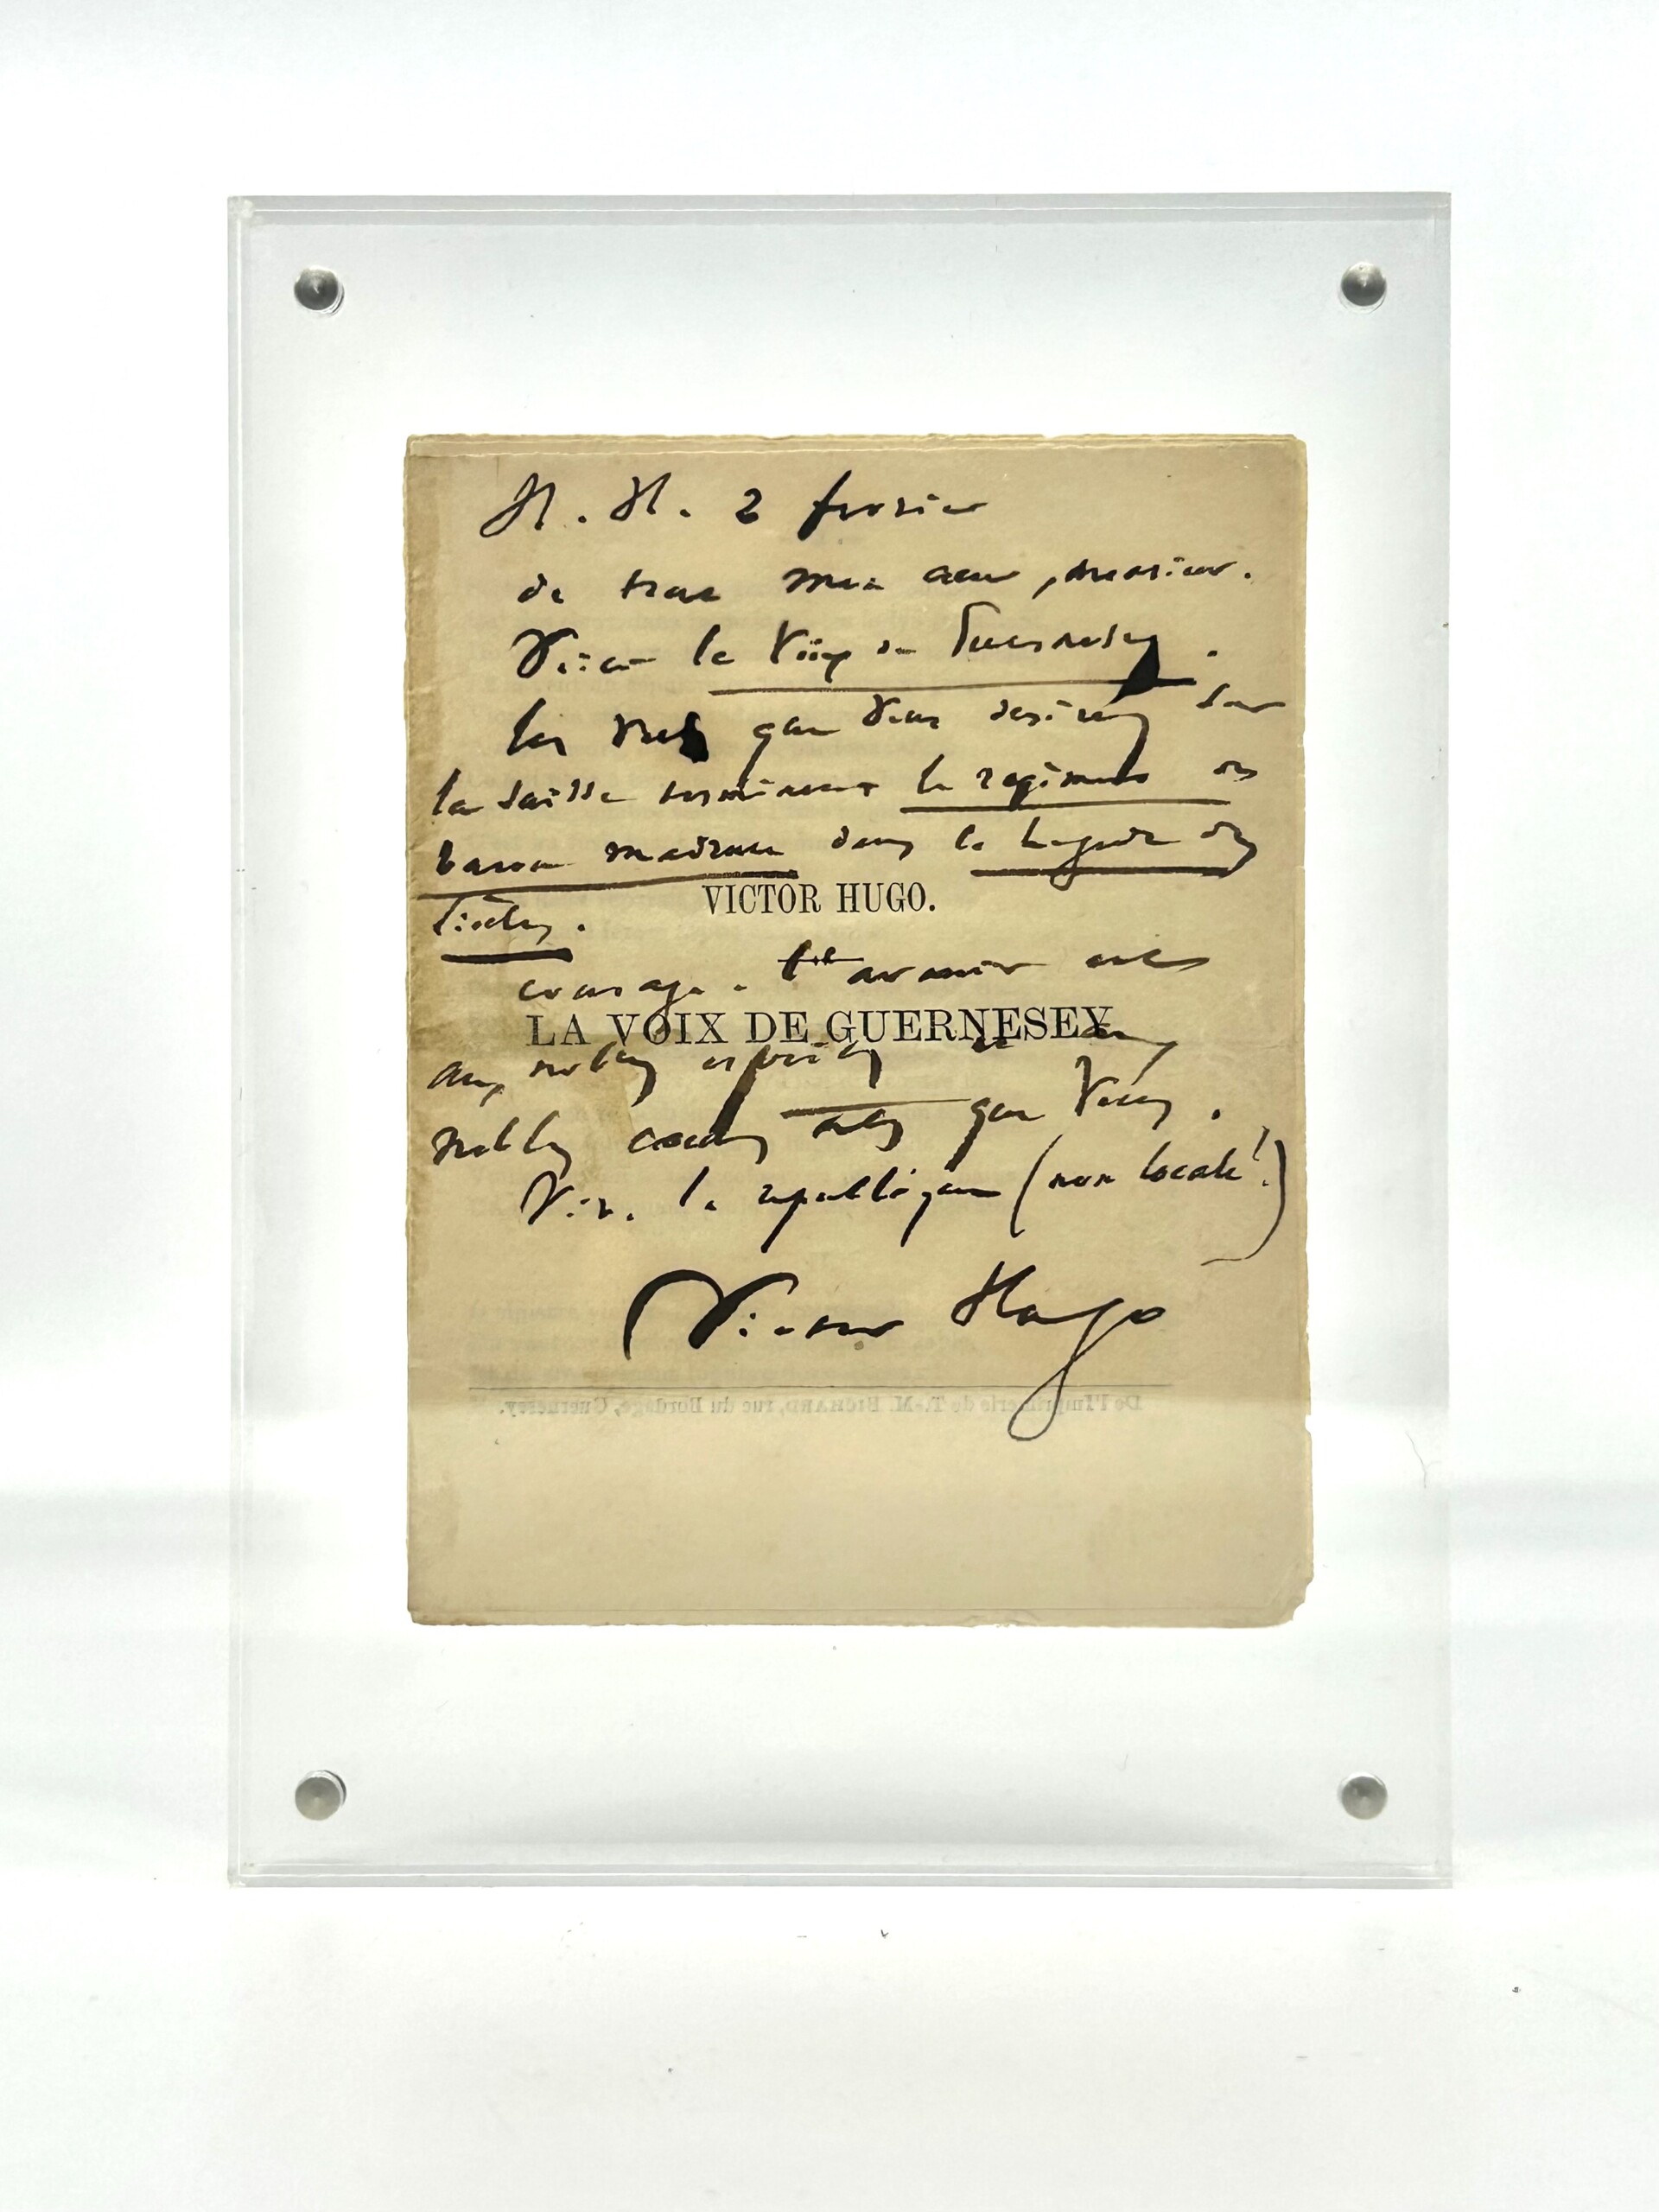 H. H. 2 février
de tout mon cœur, monsieur.
Voici la Voix de Guernesey.
les vers que vous désirez sur
la Suisse terminent le régiment du
baron Madruce dans la Légende des
Siècles.
VICTOR HUGO.
courage. l'avenir est
LA VOIX DE GUERNESEY
aux nobles esprits et aux
nobles cœurs tels que vous.
Vive la république (non locale!)
Victor Hugo
De l'Imprimerie de T.-M. BICHARD, rue du Bordage, Guernesey.